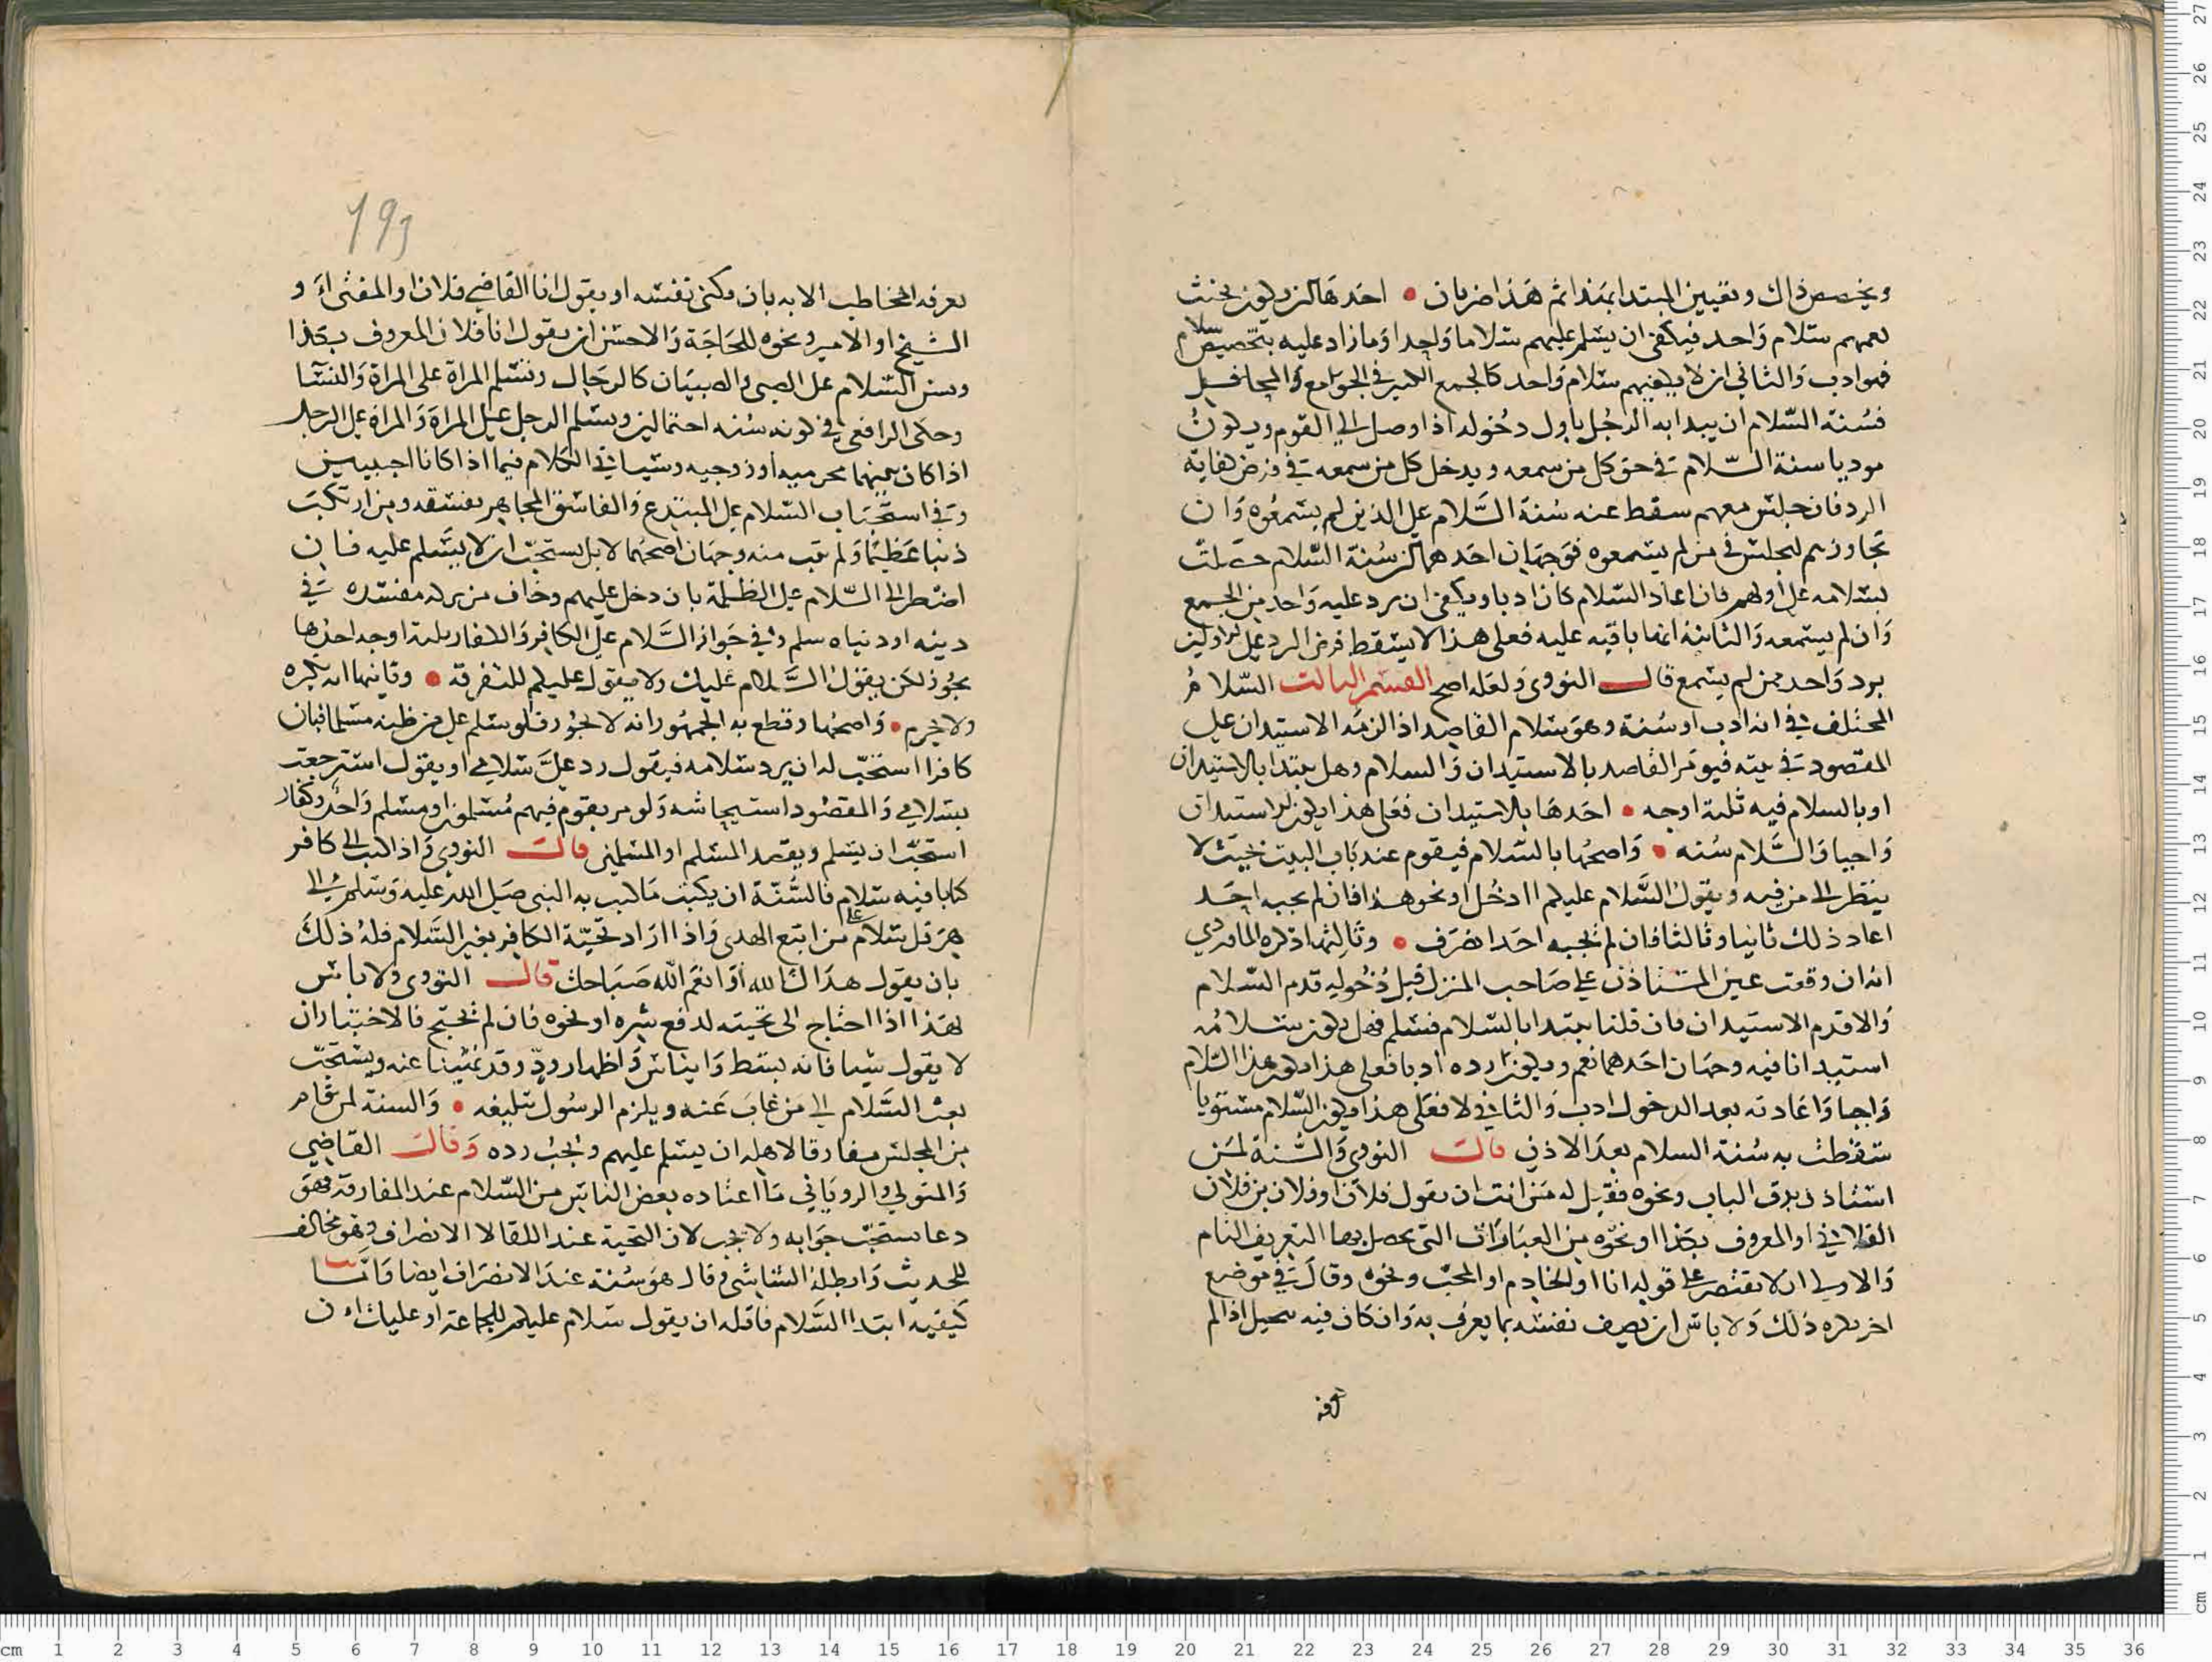 ويخصص ذاك وتعيين المبتدا بهذا ثم هذا ضربان • احدها ان يكون بحيث
يعمهم سلام واحد فيكفى ان يسلم عليهم سلاما واحدا وما زاد عليه بتخصيص سلام
فهو ادب والثانى ان لا يكفيهم سلام واحد كالجمع الكبير فى الجوامع والمحافل
فسنة السلام ان يبدا به الرجل باول دخوله اذا وصل الى القوم ويكون
موديا سنة السلام فى حق كل من سمعه ويدخل كل من سمعه فى فرض كفاية
الرد فان جلس معهم سقط عنه سنة السلام على الذين لم يسمعوه وان
تجاوزهم ليجلس فى من لم يسمعوه فوجهان احدهما ان سنة السلام حصلت
بسلامه على اولهم فان اعاد السلام كان ادبا ويكفى ان يرد عليه واحد من الجمع
وان لم يسمعه والثانية انها باقيه عليه فعلى هذا لا يسقط فرض الرد على الاولين
برد واحد ممن لم يسمع قال النووى ولعله اصح القسم الثالث السلام
المختلف فى انه ادب او سنة وهو سلام القاصد اذا لزمه الاستيدان على
المقصود فى بيته فيومر القاصد بالاستيدان والسلام وهل يبتدا بالاستيدان
او بالسلام فيه ثلثة اوجه • احدها بالاستيدان فعلى هذا يكون الاستيدان
واجبا والسلام سنه • واصحها بالسلام فيقوم عند باب البيت بحيث لا
ينظر الى من فيه ويقول السلام عليكم اادخل او نحو هذا فان لم يجبه احد
اعاد ذلك ثانيا وثالثا فان لم يجبه احد انصرف • وثالثها ذكره الماوردي
انه ان وقعت عين المستاذن على صاحب المنزل قبل دخوله قدم السلام
والا قدم الاستيدان فان قلنا يبتدا بالسلام فسلم فهل يكون سلامه
استيدانا فيه وجهان احدهما نعم ويكون رده ادبا فعلى هذا يكون هذا السلام
واجبا واعادته بعد الدخول ادب والثانى لا فعلى هذا يكون السلام مستويا
سقطت به سنة السلام بعد الاذن قالت النووى والسنة لمن
استاذن بدق الباب ونحوه فقيل له من انت ان يقول فلان او فلان بن فلان
الفلانى او المعروف بكذا او نحوه من العبارات التى يحصل بها التعريف التام
والاولى ان لا يقتصر على قوله انا او الخادم او المحب ونحوه وقال فى موضع
اخر يكره ذلك ولا باس ان يصف نفسه بما يعرف به وان كان فيه تبجيل اذا لم
193
يعرفه المخاطب الا به بان يكنى نفسه او يقول انا القاضى فلان او المفتى او
الشيخ او الامير ونحوه للحاجة والاحسن ان يقول انا فلان المعروف بكذا
ويسن السلام على الصبى والصبيان كالرجال وتسلم المراة على المراة والنسا
وحكى الرافعى فى كونه سنه احتمالين ويسلم الرجل على المراة والمراة على الرجل
اذا كان بينهما محرميه او زوجيه وسياتى الكلام فيما اذا كانا اجنبيين
وفى استحباب السلام على المبتدع والفاسق المجاهر بفسقه ومن ارتكب
ذنبا عظيما ولم يتب منه وجهان اصحهما لا بل يستحب ان لا يسلم عليه فان
اضطر الى السلام على الظلمة بان دخل عليهم وخاف من تركه مفسده فى
دينه او دنياه سلم وفى جواز السلام على الكافر والكفار ثلثة اوجه احدها
يجوز لكن يقول السلام عليك ولا يقول عليكم للتفرقة • وثانيها انه يكره
ولا يحرم • واصحها وقطع به الجمهور انه لا يجوز فلو سلم على من ظنه مسلما فبان
كافرا استحب له ان يرد سلامه فيقول رد على سلامى او يقول استرجعت
بسلامى والمقصود استيحاشه ولو مر بقوم فيهم مسلمون او مسلم واحد وكفار
استحب ان يسلم ويقصد المسلم او المسلمين قالت النووى واذا كتب الى كافر
كتابا فيه سلام فالسنة ان يكتب ما كتب به النبى صلى الله عليه وسلم الى
هرقل سلام على من اتبع الهدى واذا اراد تحية الكافر بغير السلام فله ذلك
بان يقول هداك الله او انعم الله صباحك قال النووى ولا باس
بهذا اذا احتاج الى تحيته لدفع شره او نحوه فان لم يحتج فالاختيار ان
لا يقول شيا فانه بسط وايناس واظهار ود وقد نهينا عنه ويستحب
بعث السلام الى من غاب عنه ويلزم الرسول تبليغه • والسنة لمن قام
من المجلس مفارقا لاهله ان يسلم عليهم ويجب رده وقالت القاضى
والمتولى والرويانى ما اعتاده بعض الناس من السلام عند المفارقة فهو
دعا يستحب جوابه ولا يجب لان التحية عند اللقا لا الانصراف وهو مخالف
للحديث وابطله الشاشى وقال هو سنة عند الانصراف ايضا واما
كيفية ابتدا السلام فاقله ان يقول سلام عليكم للجماعة او عليك ان